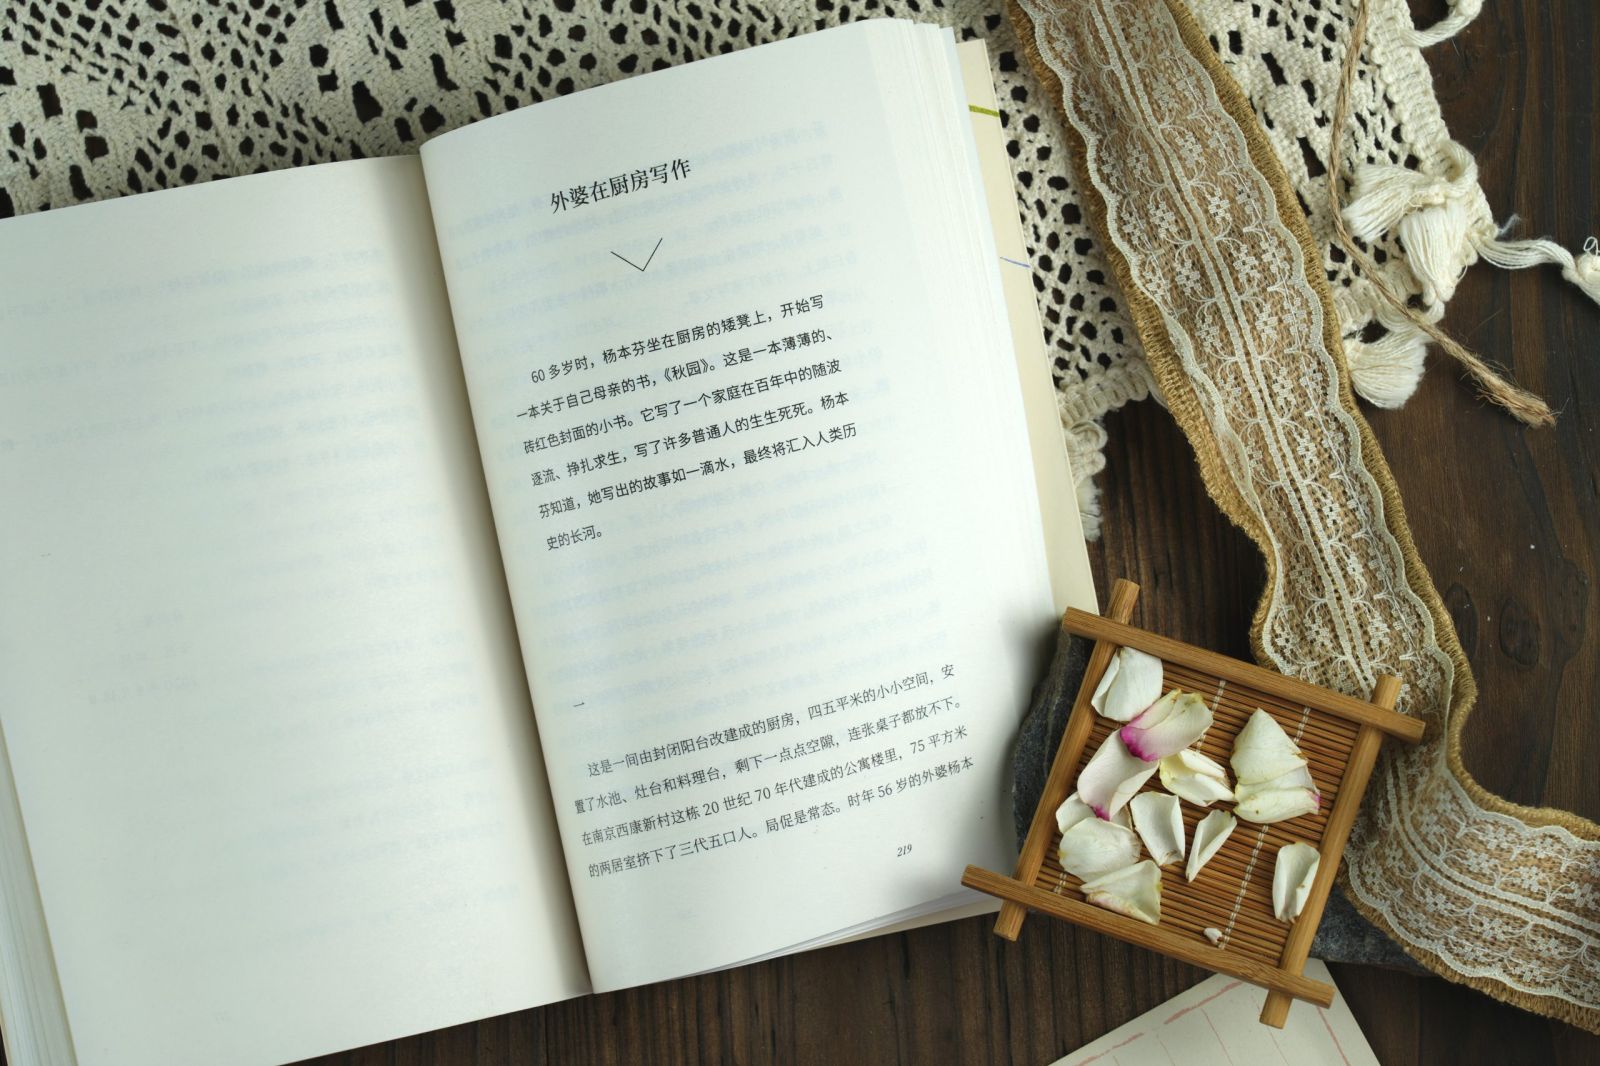 外婆在厨房写作
60 多岁时，杨本芬坐在厨房的矮凳上，开始写
一本关于自己母亲的书，《秋园》。这是一本薄薄的、
砖红色封面的小书。它写了一个家庭在百年中的随波
逐流、挣扎求生，写了许多普通人的生生死死。杨本
芬知道，她写出的故事如一滴水，最终将汇入人类历
史的长河。
一
这是一间由封闭阳台改建成的厨房，四五平米的小小空间，安
置了水池、灶台和料理台，剩下一点点空隙，连张桌子都放不下。
在南京西康新村这栋 20 世纪 70 年代建成的公寓楼里，75 平方米
的两居室挤下了三代五口人。局促是常态。时年 56 岁的外婆杨本
219